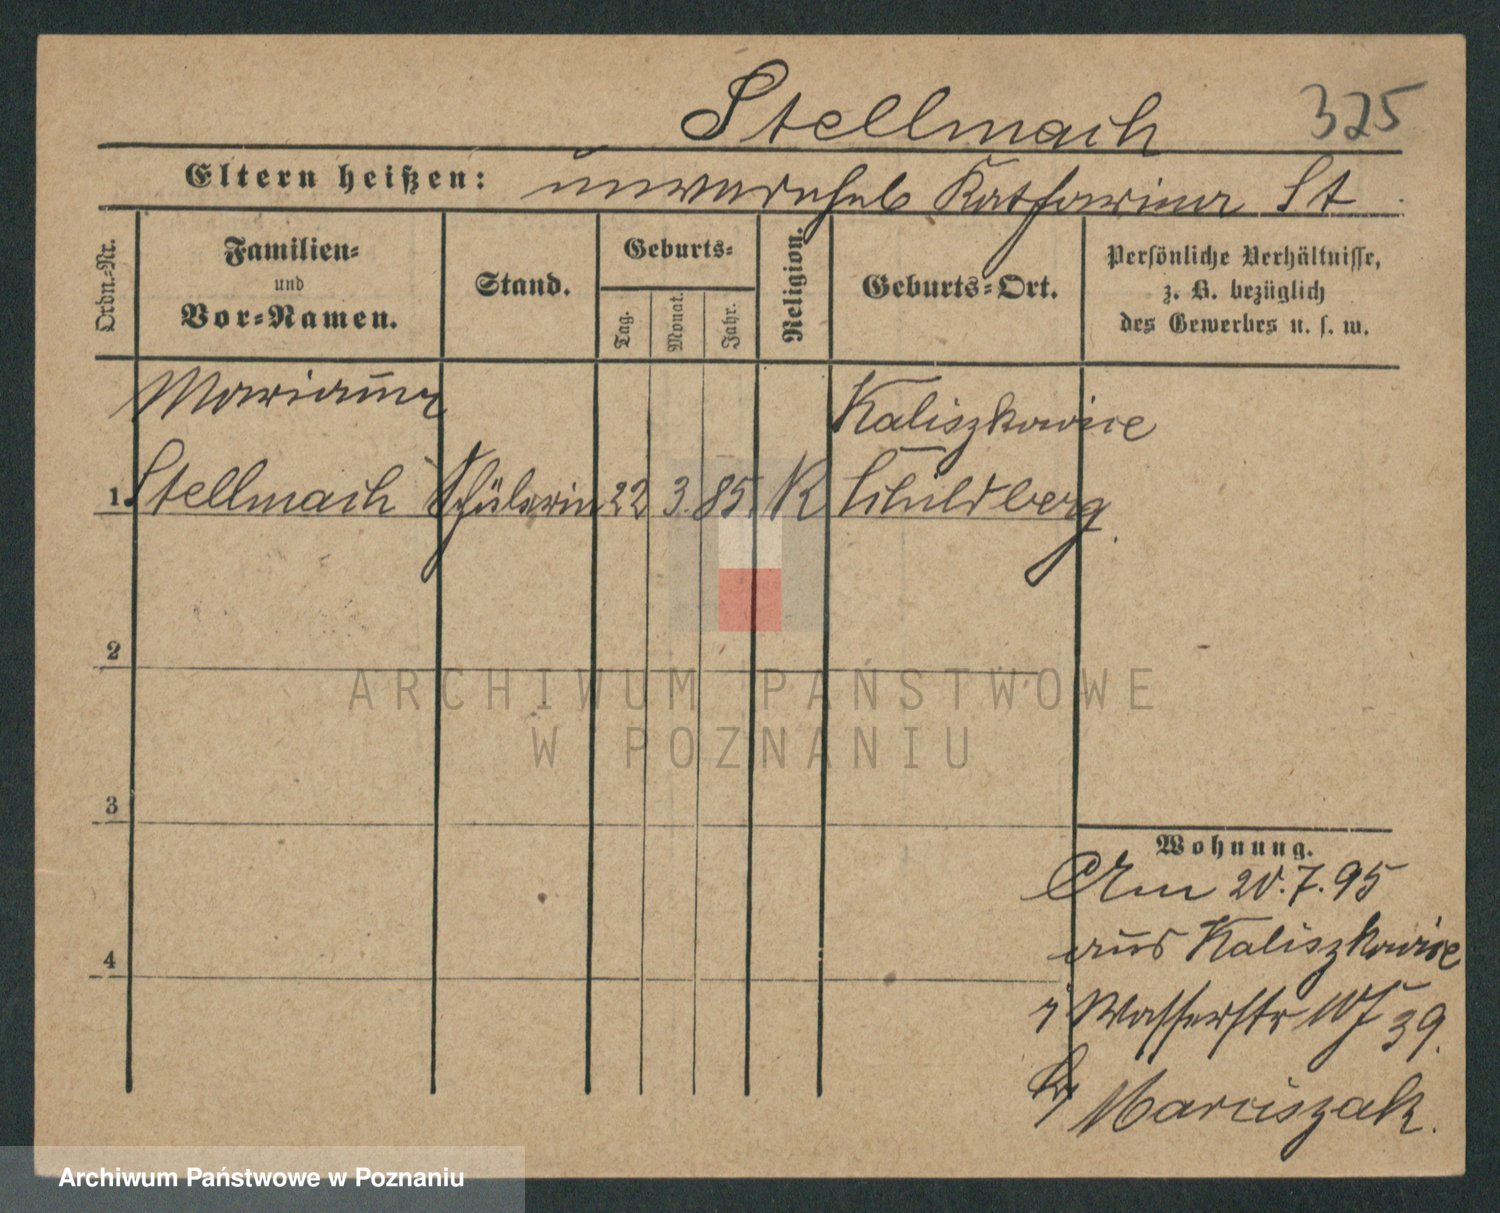 Stellmach 325
Eltern heißen: unverehel Katharina St
Ordn.-Nr.
Familien-
und
Vor-Namen.
Stand.
Geburts-
Tag.
Monat.
Jahr.
Religion.
Geburts-Ort.
Persönliche Verhältnisse,
z. B. bezüglich
des Gewerbes u. s. w.
Marianna Kaliszkowice
1. Stellmach Schülerin 22 3. 85. K Schildberg.
2
3
4
Wohnung.
Am 20.7.95
aus Kaliszkowice
Wasserstr 39.
Marciszak.
ARCHIWUM PAŃSTWOWE
W POZNANIU
Archiwum Państwowe w Poznaniu